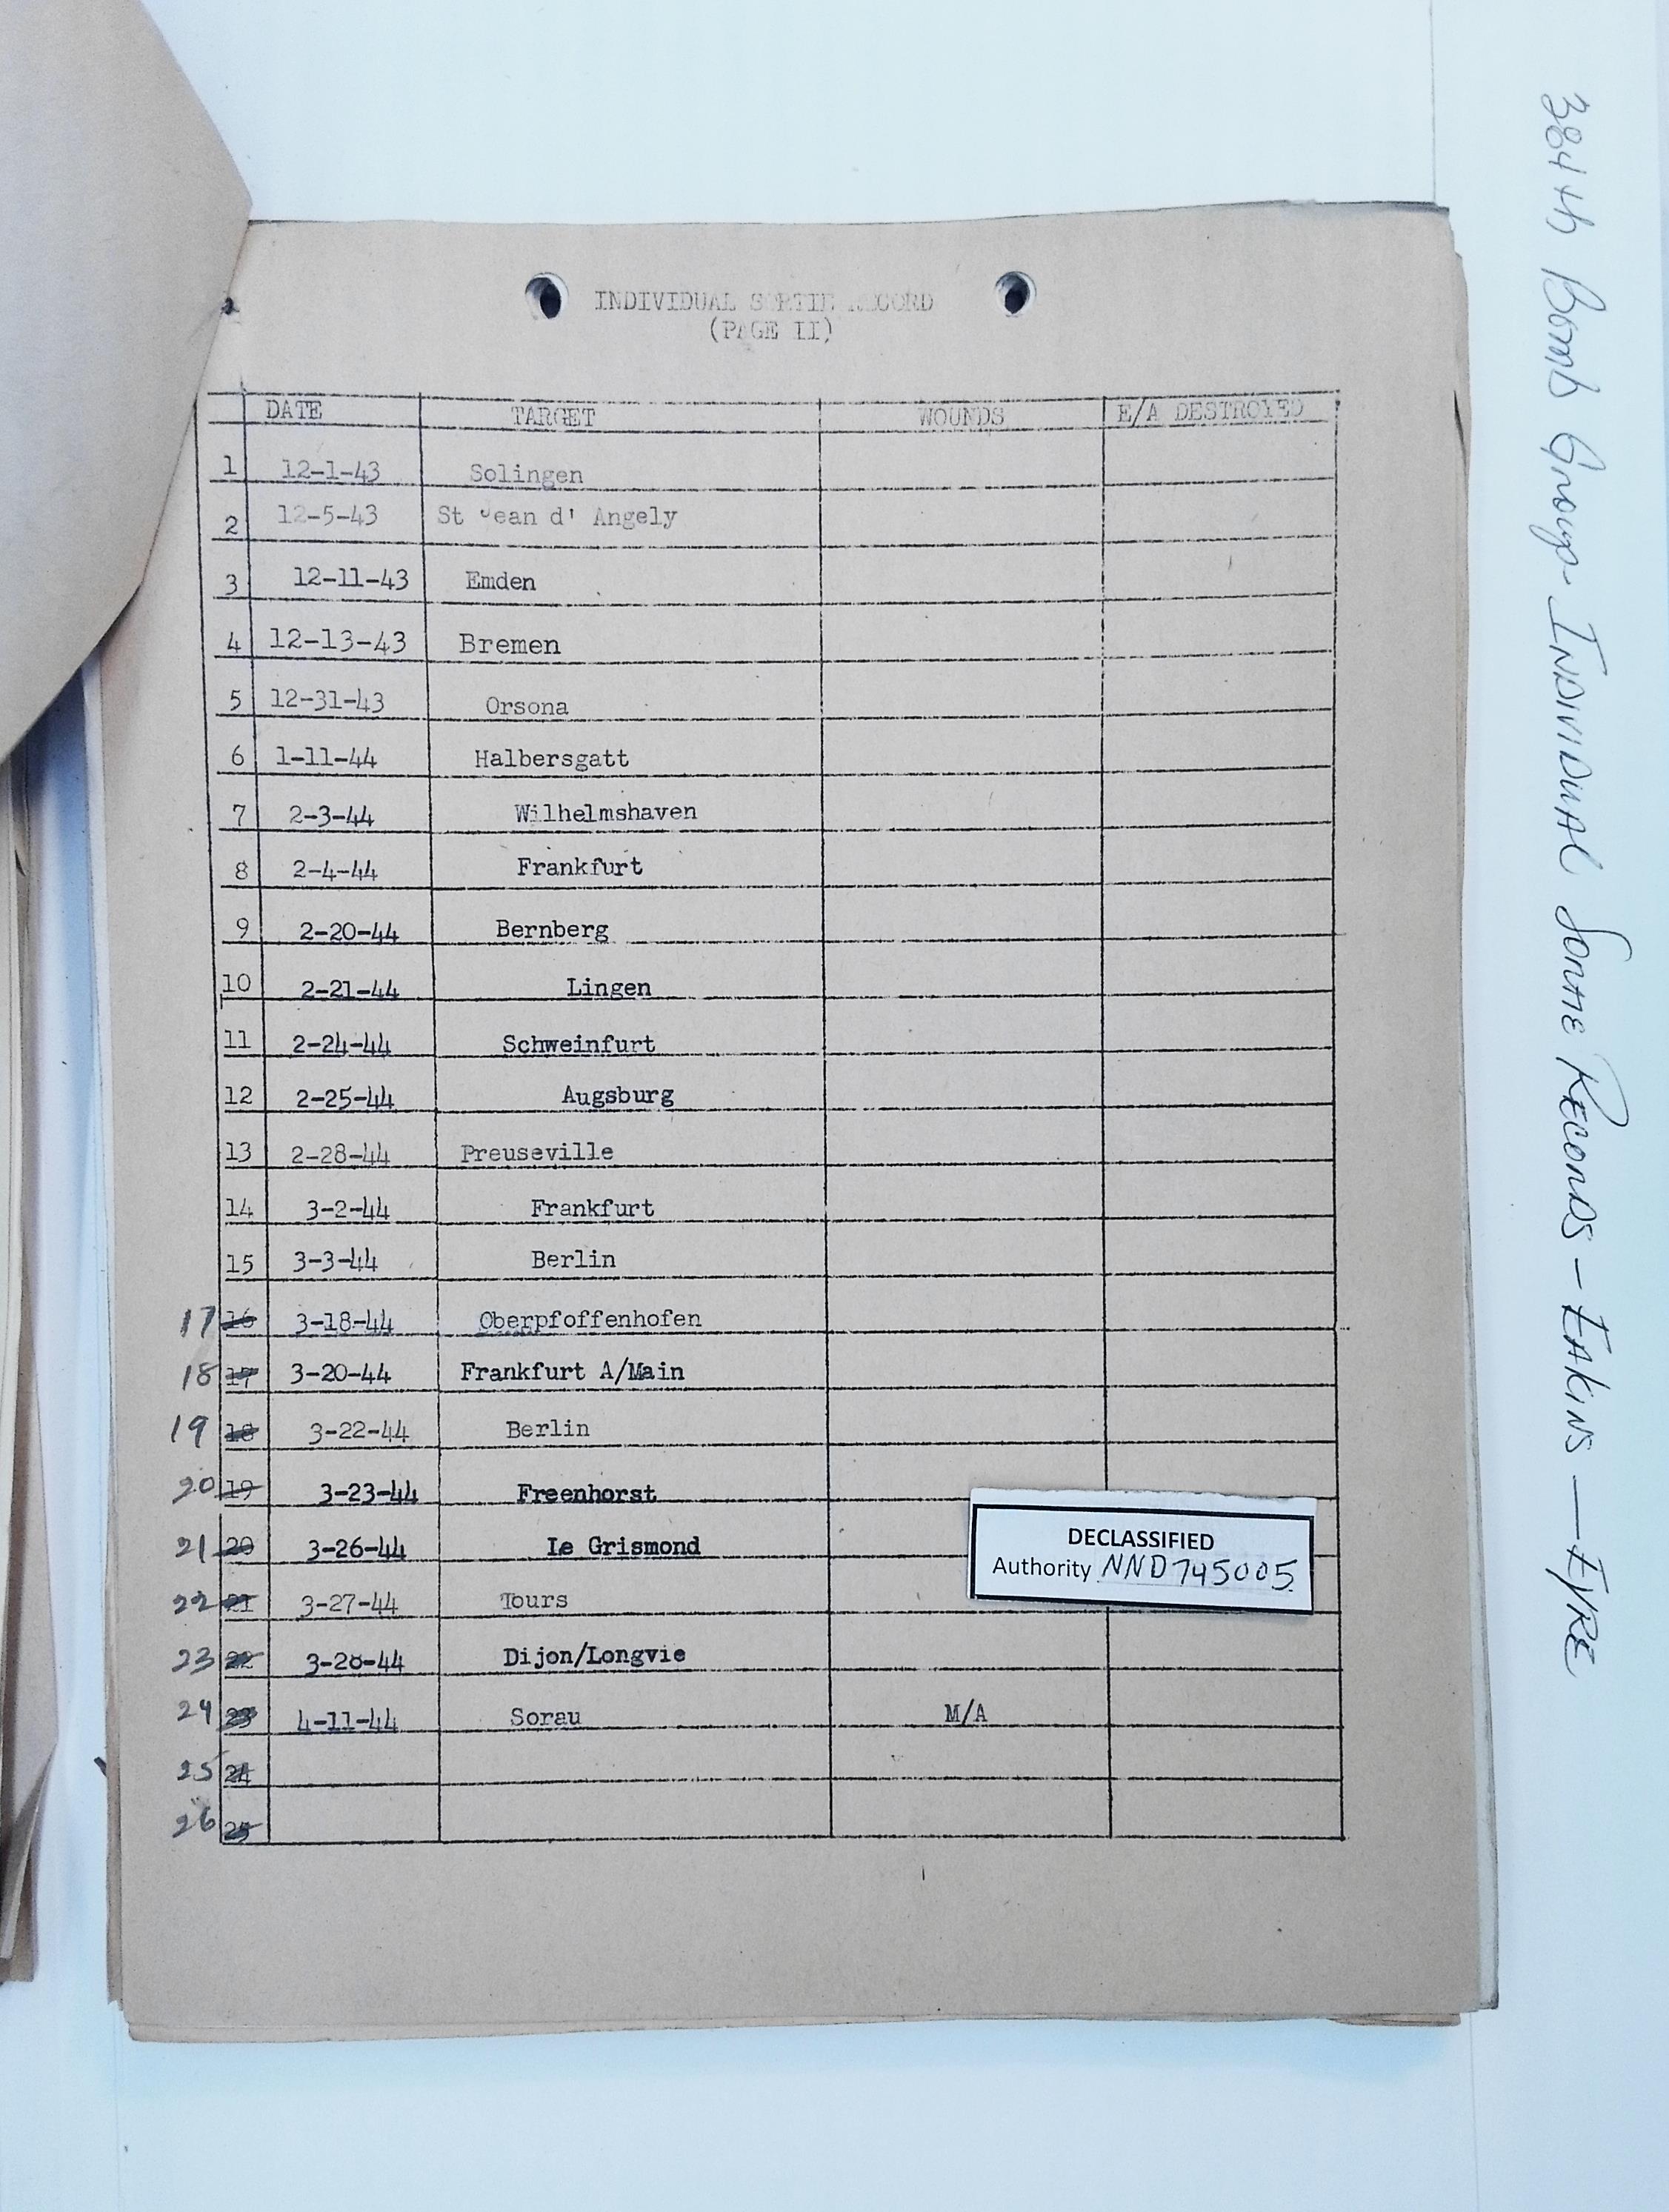 INDIVIDUAL SORTIE RECORD
(PAGE II)
DATE TARGET WOUNDS E/A DESTROYED
1 12-1-43 Solingen
2 12-5-43 St Jean d' Angely
3 12-11-43 Emden
4 12-13-43 Bremen
5 12-31-43 Orsona
6 1-11-44 Halbersgatt
7 2-3-44 Wilhelmshaven
8 2-4-44 Frankfurt
9 2-20-44 Bernberg
10 2-21-44 Lingen
11 2-24-44 Schweinfurt
12 2-25-44 Augsburg
13 2-28-44 Preuseville
14 3-2-44 Frankfurt
15 3-3-44 Berlin
17 16 3-18-44 Oberpfoffenhofen
18 17 3-20-44 Frankfurt A/Main
19 18 3-22-44 Berlin
20 19 3-23-44 Freenhorst
21 20 3-26-44 Le Grismond
22 21 3-27-44 Tours
23 22 3-28-44 Dijon/Longvie
24 23 4-11-44 Sorau M/A
25 24
26 25
DECLASSIFIED
Authority NND 745005
384th Bomb Group - Individual Sortie Records - Eakins — Eyre